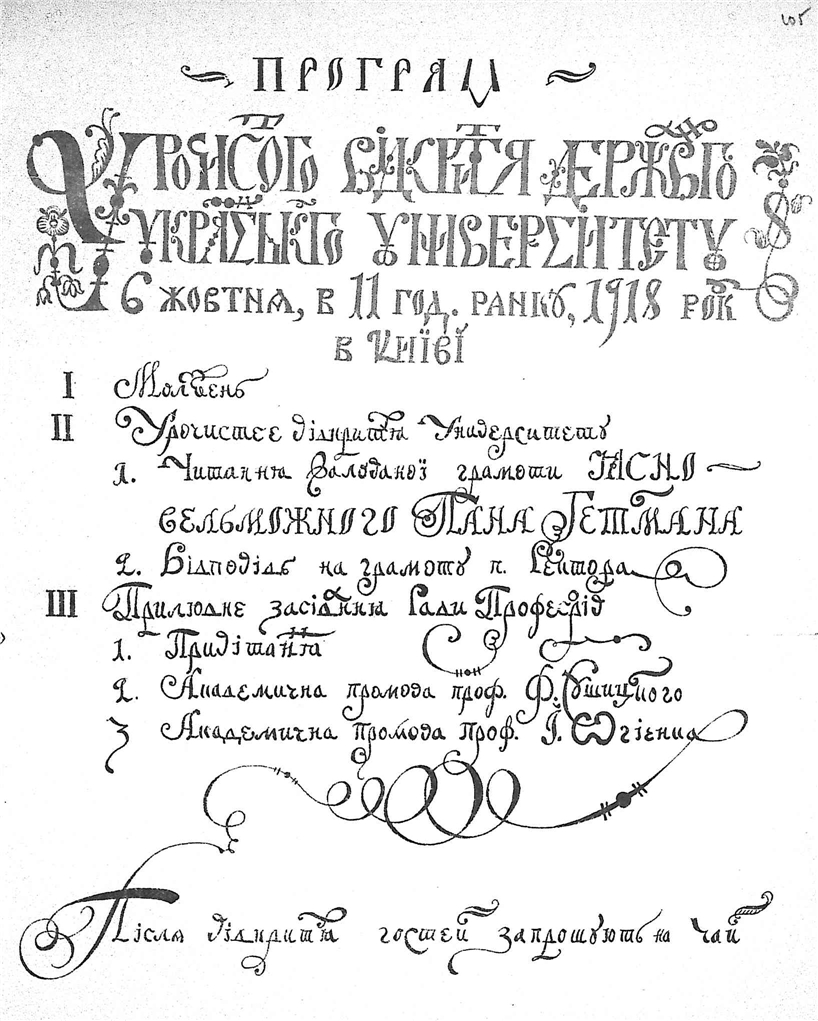 105
ПРОГРАМ
УРОЧИСТОГО ВІДКРИТТЯ ДЕРЖАВНОГО
УКРАЇНСЬКОГО УНІВЕРСИТЕТУ
6 ЖОВТНЯ, В 11 ГОД. РАНКУ, 1918 РОКУ
В КИЇВІ
I Молебень
II Урочистеє відкриття Университету
1. Читання Залованої грамоти ЯСНО-
ВЕЛЬМОЖНОГО ПАНА ГЕТМАНА
2. Відповідь на грамоту п. Ректора
III Прилюдне засідання Ради Професорів
1. Привітання
2. Академична промова проф. Ф. Сушицького
3 Академична промова проф. І. Огієнка
Після відкриття гостей запрошують на чай